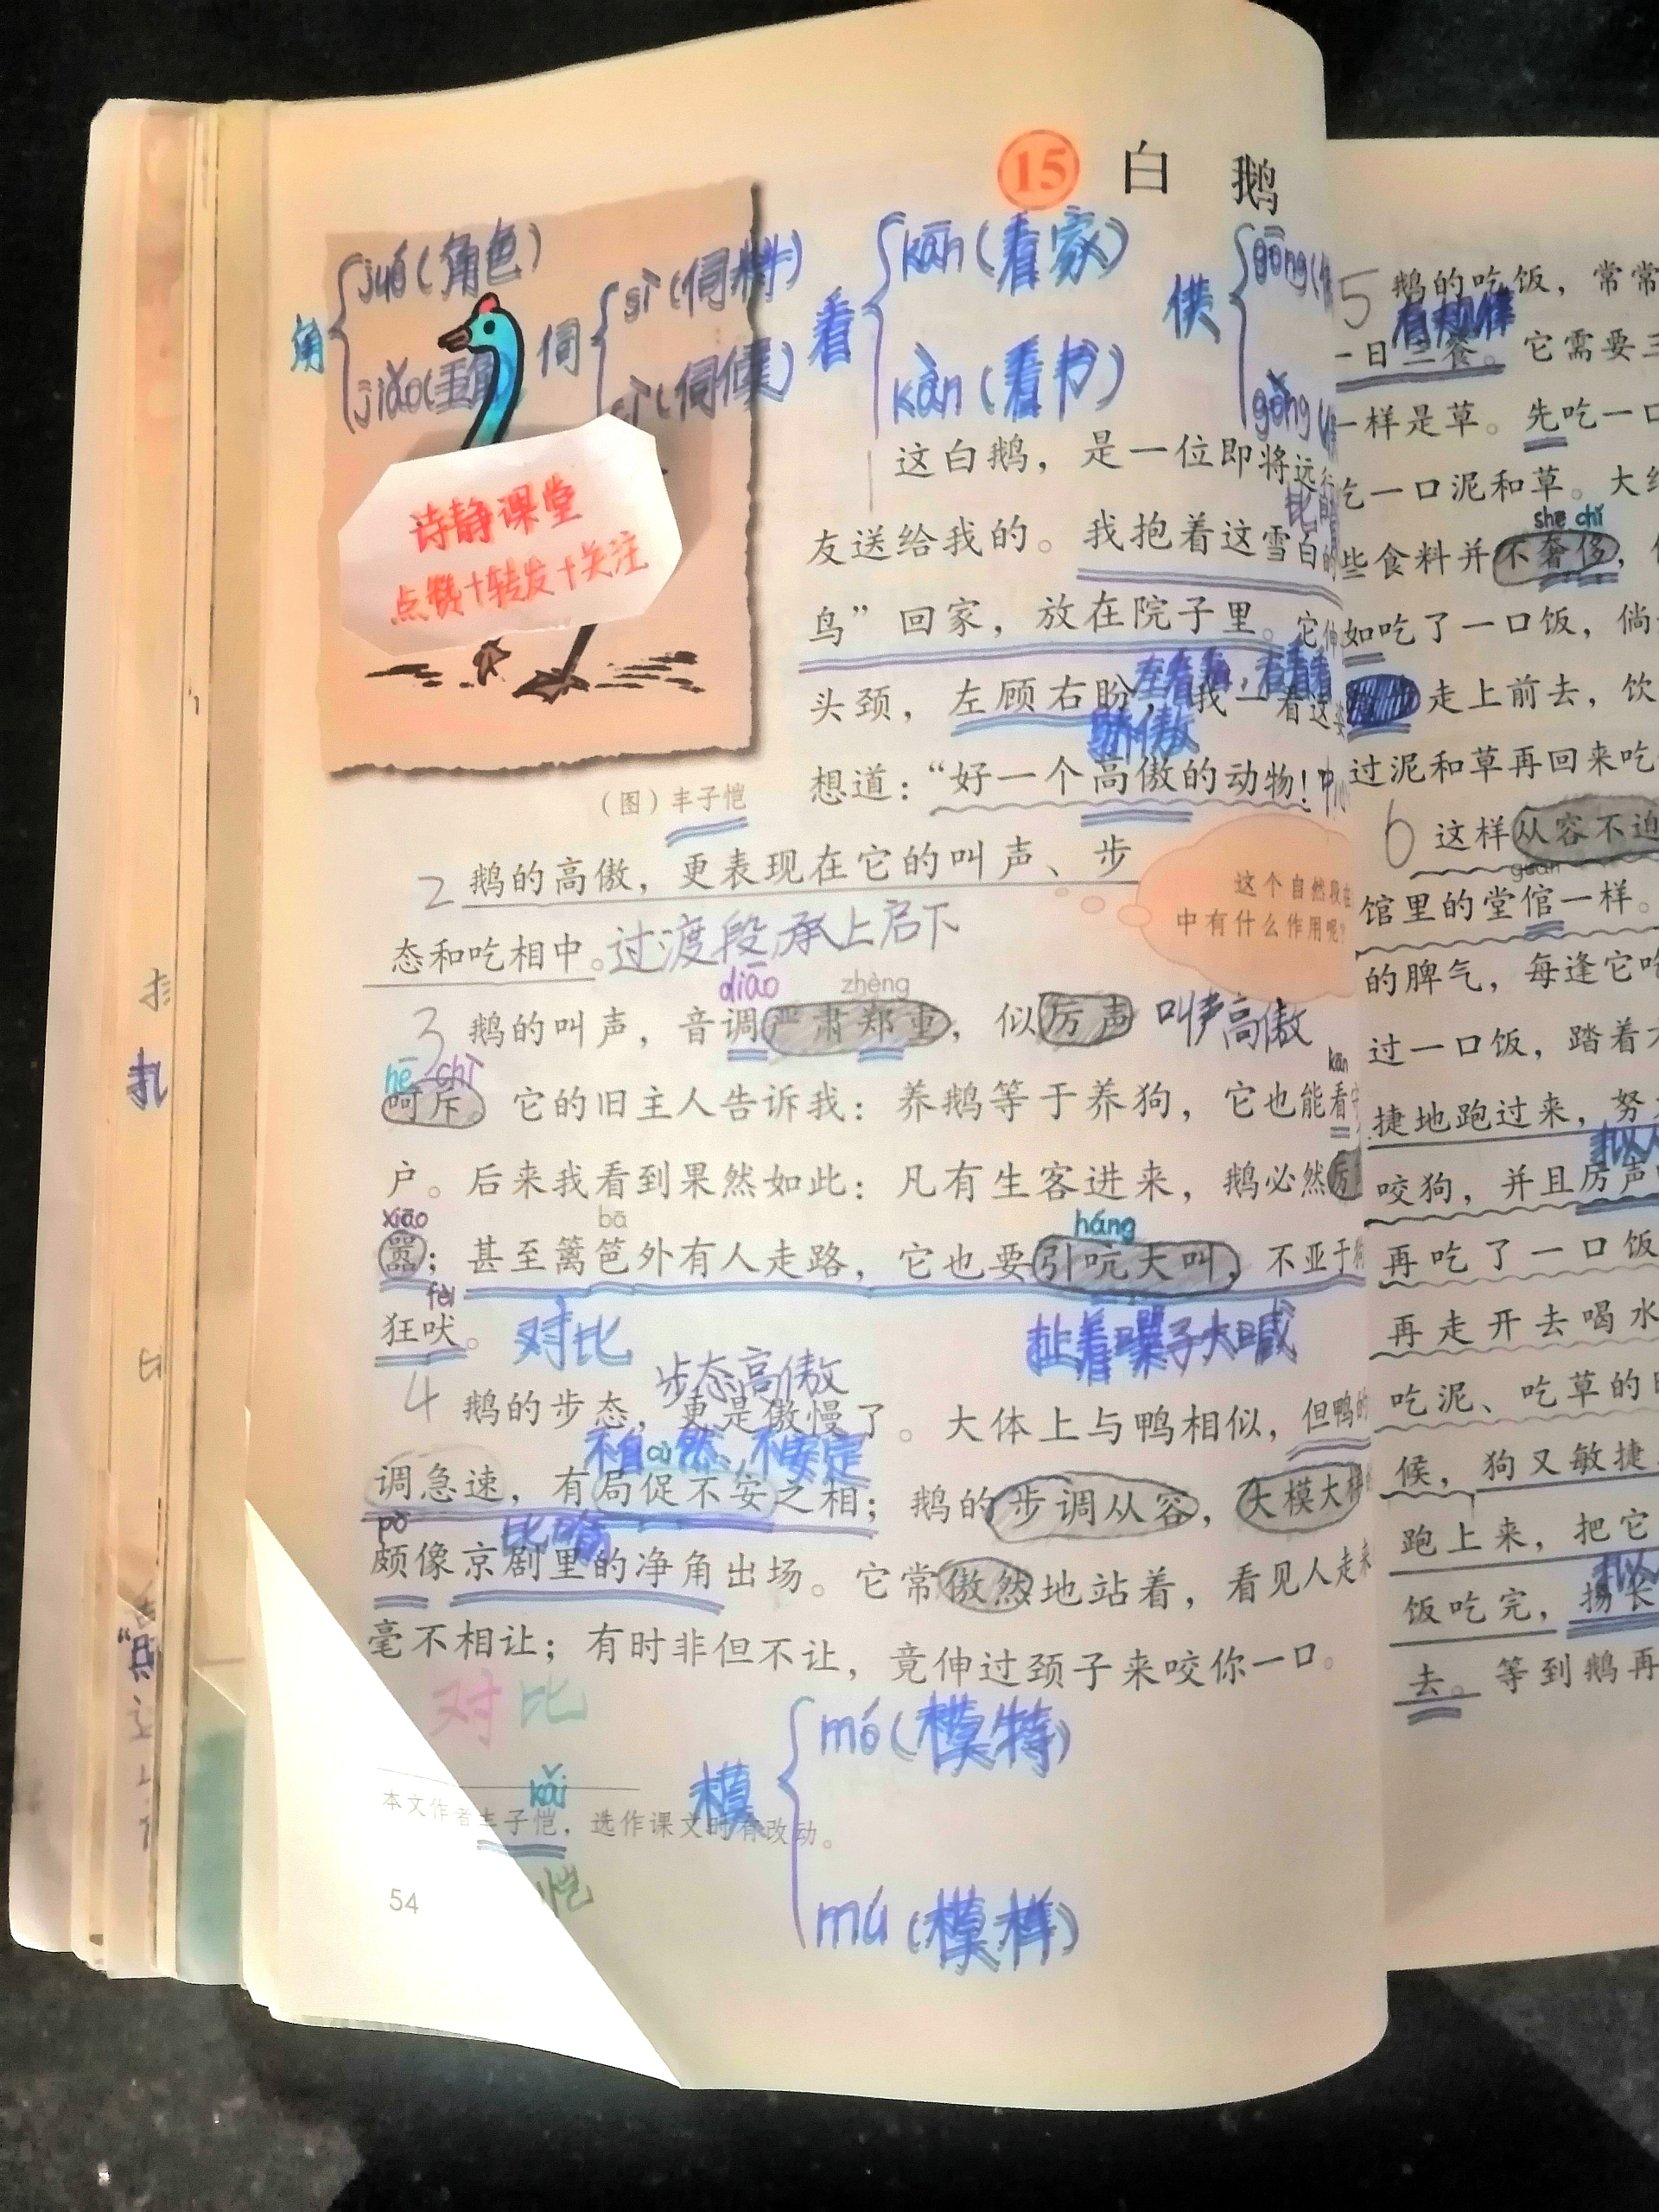 15 白 鹅
角 jué(角色)
jiǎo(
伺 sì(伺料)
(伺候)
看 kān(看家)
kàn(看书)
供 gōng(
gòng(
诗静课堂
点赞+转发+关注
这白鹅，是一位即将远行
比喻
友送给我的。我抱着这雪白的
鸟”回家，放在院子里。它伸
左看看，右看看
头颈，左顾右盼，我一看这姿
骄傲
想道：“好一个高傲的动物！
(图)丰子恺
2 鹅的高傲，更表现在它的叫声、步
态和吃相中。过渡段，承上启下
这个自然段在
中有什么作用呢？
diào zhèng
3 鹅的叫声，音调严肃郑重，似厉声 叫声高傲
hē chì kān
呵斥。它的旧主人告诉我：养鹅等于养狗，它也能看守
户。后来我看到果然如此：凡有生客进来，鹅必然厉
xiāo bā háng
嚣；甚至篱笆外有人走路，它也要引吭大叫，不亚于狗
fèi
狂吠。对比 扯着嗓子大喊
步态高傲
4 鹅的步态，更是傲慢了。大体上与鸭相似，但鸭的
不自然，不安定
cù
调急速，有局促不安之相；鹅的步调从容，大模大样
pō 比喻
颇像京剧里的净角出场。它常傲然地站着，看见人走来
毫不相让；有时非但不让，竟伸过颈子来咬你一口。
对比
模 mó(模特)
mú(模样)
kǎi
本文作者丰子恺，选作课文时有改动。
恺
54
5 鹅的吃饭，常常
有规律
一日三餐。它需要三
一样是草。先吃一口
吃一口泥和草。大约
shē chǐ
些食料并不奢侈，但
如吃了一口饭，倘
走上前去，饮
过泥和草再回来吃
6 这样从容不迫
guān
馆里的堂倌一样。
的脾气，每逢它吃
过一口饭，踏着大
捷地跑过来，努
拟人
咬狗，并且厉声
再吃了一口饭
再走开去喝水
吃泥、吃草的
候，狗又敏捷
跑上来，把它
拟人
饭吃完，扬长
去。等到鹅再